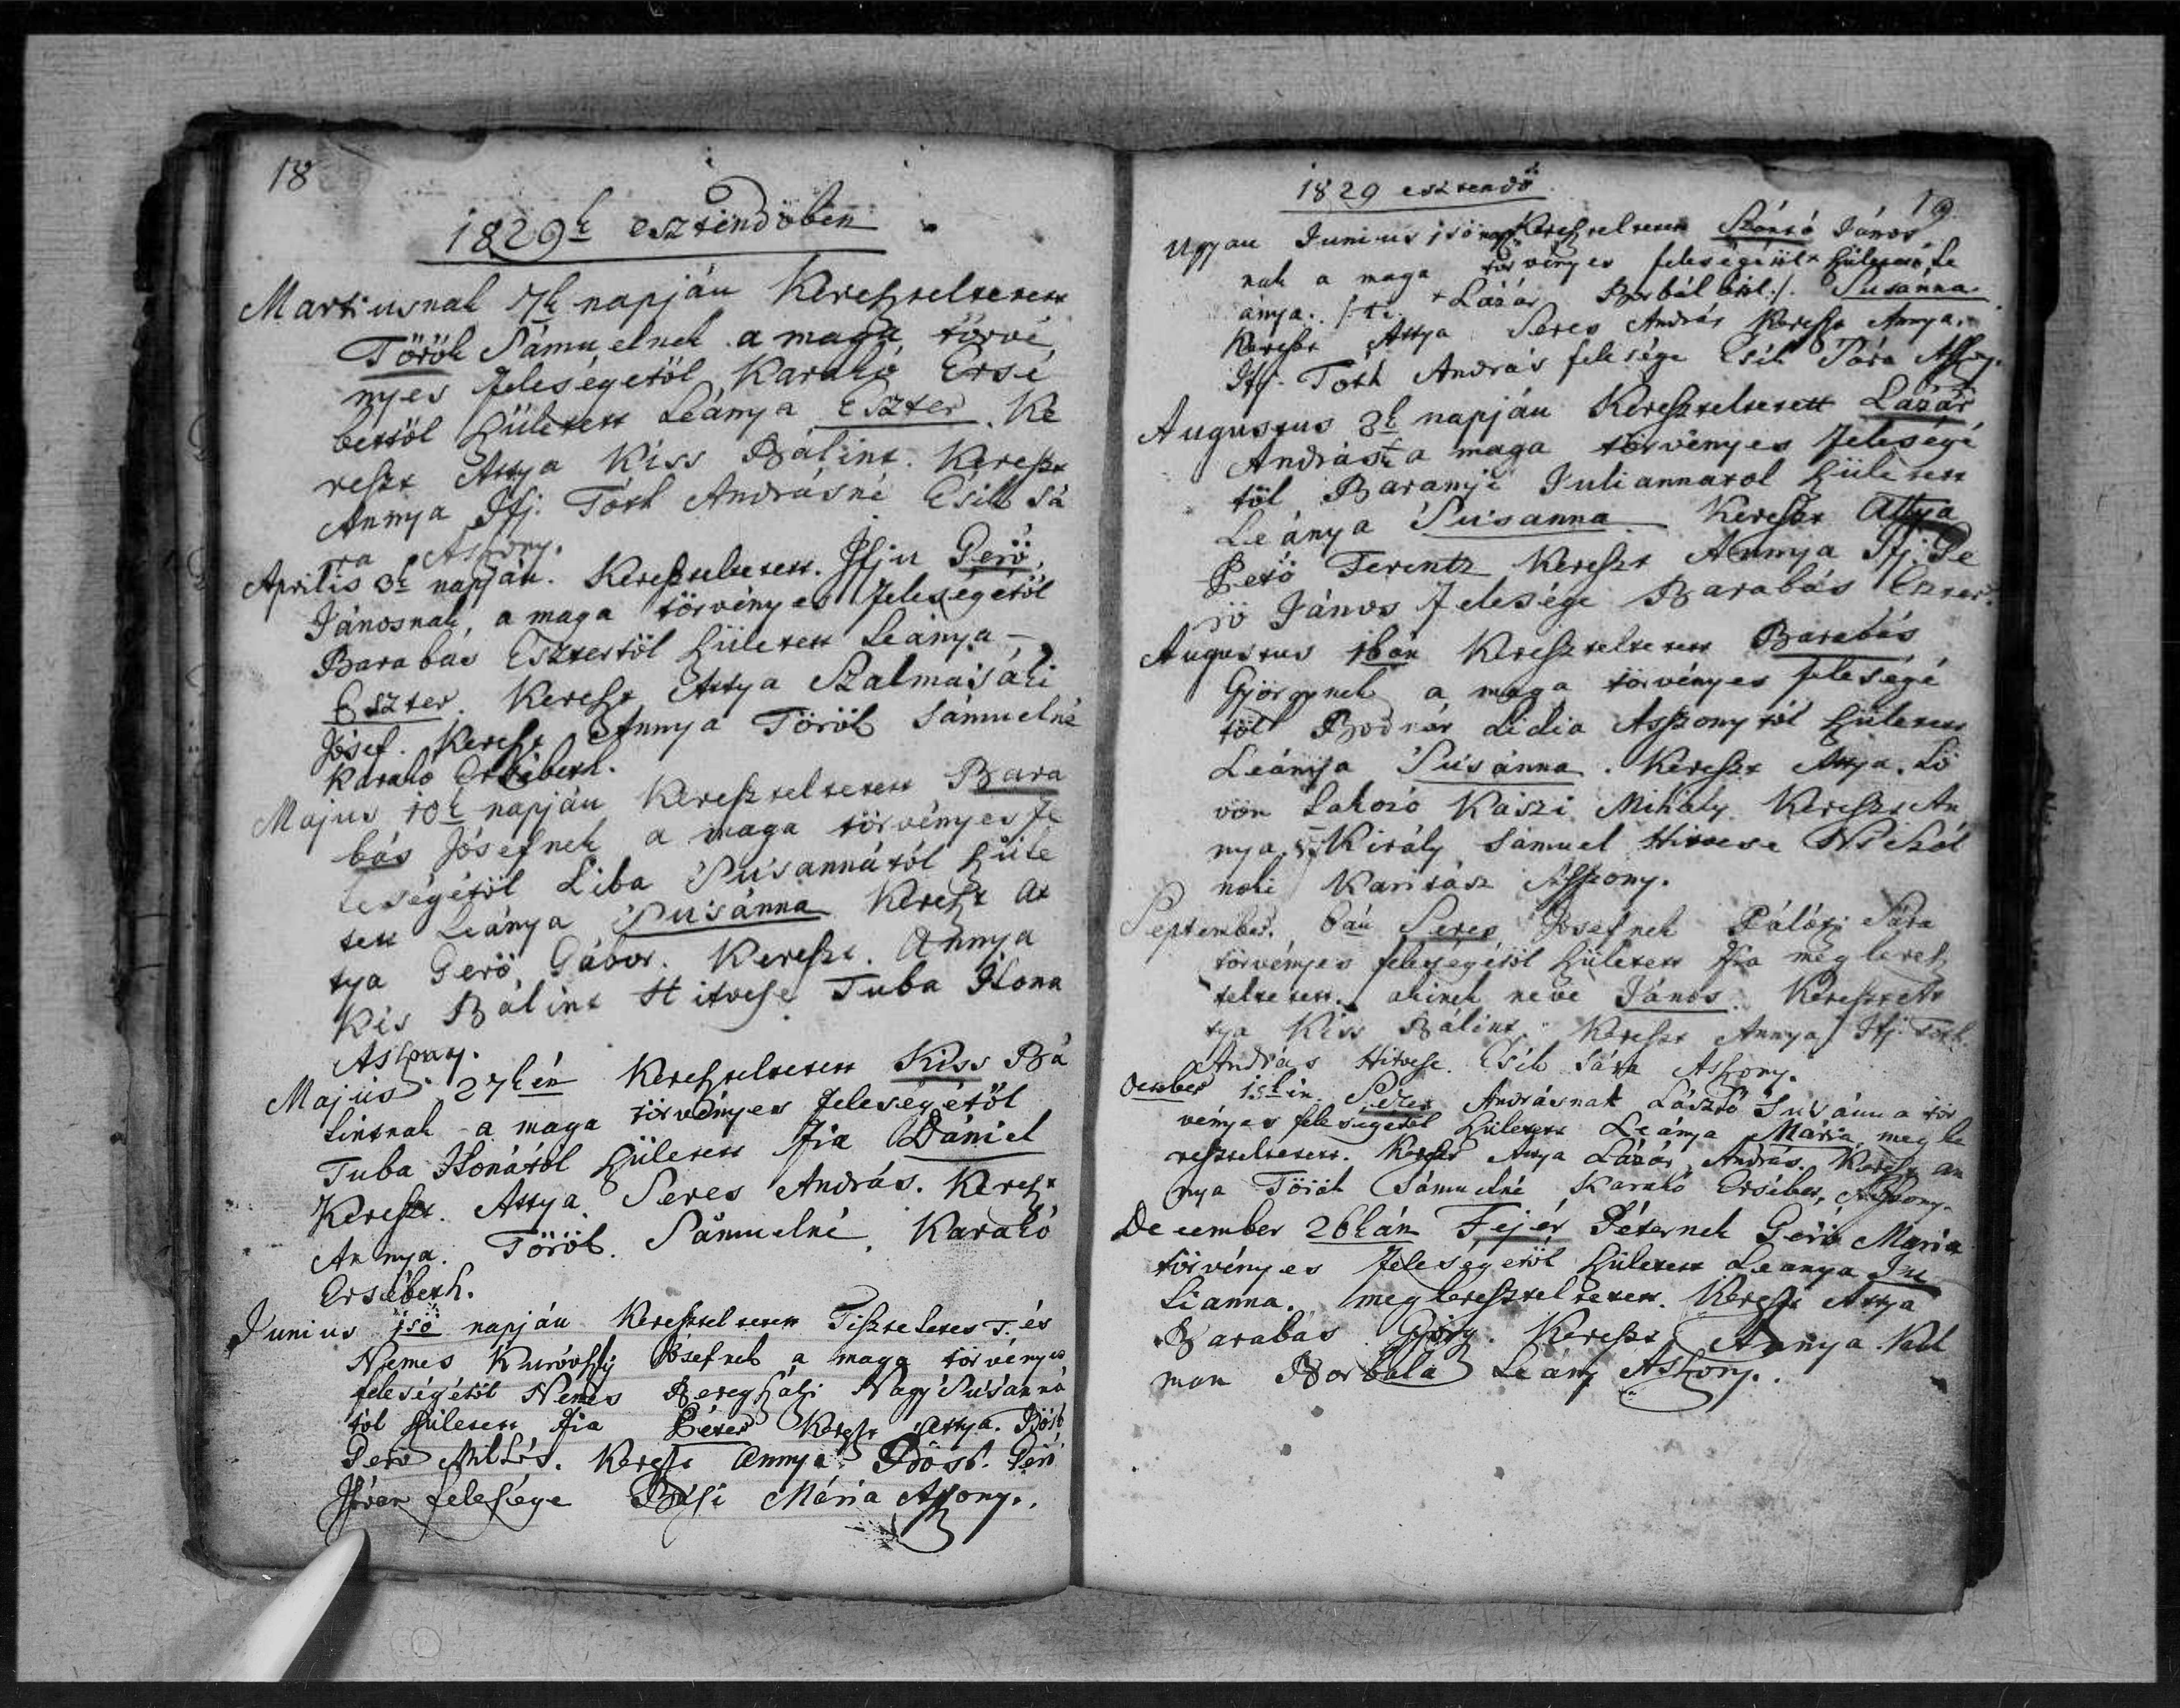 18
1829k esztendöben
Martiusnak 7k napján Kereszteltetett
Török Sámuelnek a maga törvé
nyes feleségétöl Karakó Ersé
bettöl Születtett Leánya Eszter. Ke
reszt Attya Kiss Bálint. Kereszt
Annya Ifj. Tóth Andrásné Csik Sá
ra Aszony.
Aprilis 3k napján. Kereszteltetett. Ifju Gerö
Jánosnak, a maga törvényes feleségétöl
Barabás Esztertöl Született Leánya –
Eszter. Kereszt Attya Szalmasági
Jósef. Kereszt Annya Török Sámuelné
Karakó Ersébeth.
Majus 10k napján Kereszteltetett Bara
bás Jósefnek a maga törvényes fe
leségétöl Liba Susannától Szüle
tett Leánya Susánna Kereszt At
tya Gerö Gábor. Kereszt. Annya
Kis Bálint Hitvese Tuba Ilona
Aszony.
Majus 27kén Kereszteltetett Kiss Bá
lintnak a maga törvényes feleségétöl
Tuba Ilonától Született Fia Dániel
Kereszt. Attya Seres András. Kereszt
Annya. Török. Sámuelné. Karakó
Ersébeth.
Junius 1sö napján Kereszteltetett Tiszteletes T. és
Nemes Kuróvszky Jósefnek a maga törvényes
feleségétöl Nemes Beregszászi Nagy Susanná
tól Született Fia Péter Kereszt Attya.
Gerö Miklós. Kereszt Annya Gerö
István felesége Mária Aszony.
1829 esztendö
19
Ugyan Junius 1sö nap. Kereszteltetett Szántó János
nak a maga törvényes feleségétöl + Született Le
ánya. /: ti + Lázár Borbálától :/ Susánna
Kereszt Attya Seres András Kereszt Annya.
Ifj. Toth András felesége Csik Sára Aszony.
Augustus 3k napján Kereszteltetett Lazár
András a maga törvényes feleségé
töl Baranyi Juliannatol Született
Leánya Susanna Kereszt Attya
Petö Ferentz Kereszt Annya Ifj. Ge
rö János felesége Barabás Eszter.
Augustus 16án Kereszteltetett Barabás
Györgynek a maga törvényes feleségé
töl Bodnár Lidia Aszszonytól Született
Leánya Susánna. Kereszt Attya. Lö
vön Lakozó Kászi Mihály. Kereszt An
nya. Király Sámuel Hitvese
noki Karitász Aszszony.
September. 6án Seres Josefnek Pálózi Sára
törvényes feleségétöl Született Fia meg keresz
teltetett. akinek neve János. Kereszt At
tya Kiss Bálint. Kereszt Annya Ifj. Toth.
András Hitvese. Csik Sára Aszony.
October Andrásnak László Susánna tör
vényes feleségétöl Született Leánya Mária, meg ke
reszteltetett. Kereszt Attya Lázár András. Kereszt an
nya Török Sámuelné Karakó Ersébet, Aszszony.
December 26kán Fejér Péternek Gerö Mária
törvényes feleségétöl Született Leanya Ju
lianna. megkereszteltetett. Kereszt Attya
Barabas György. Kereszt Annya Kál
mán Borbála Leány Aszony.